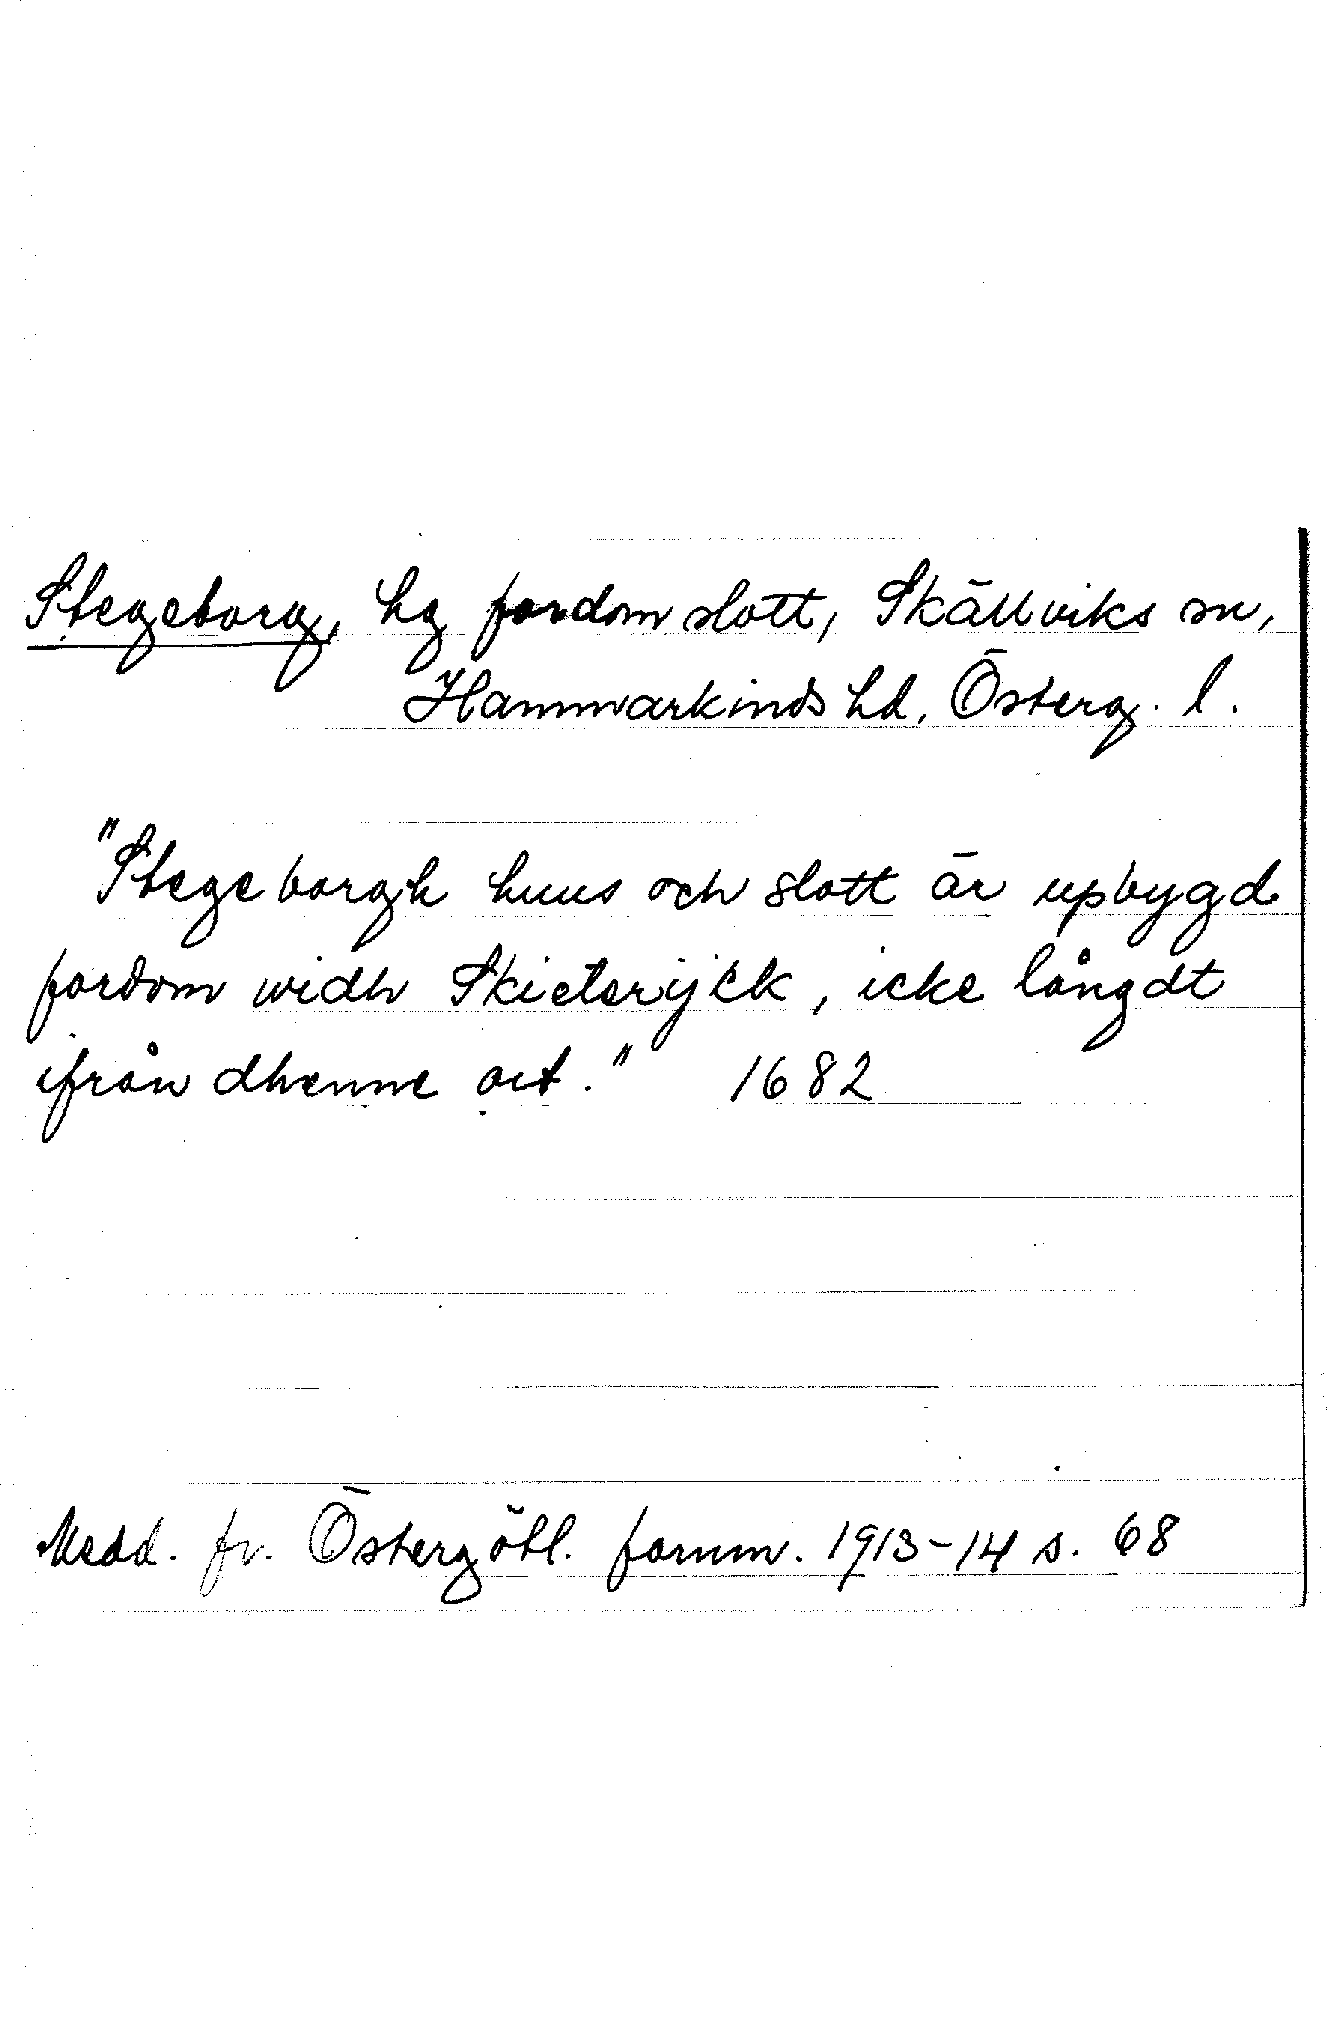 Stegeborg, hg fordom slott, Skällviks sn,
Hammarkinds hd, Österg. l.
"Stegeborgh huus och slott är upbygd
fordom widh Skieterijkk, icke långdt
ifrån dhenne ort." 1682
Medd. fr. Östergötl. fornm. 1913-14 s. 68